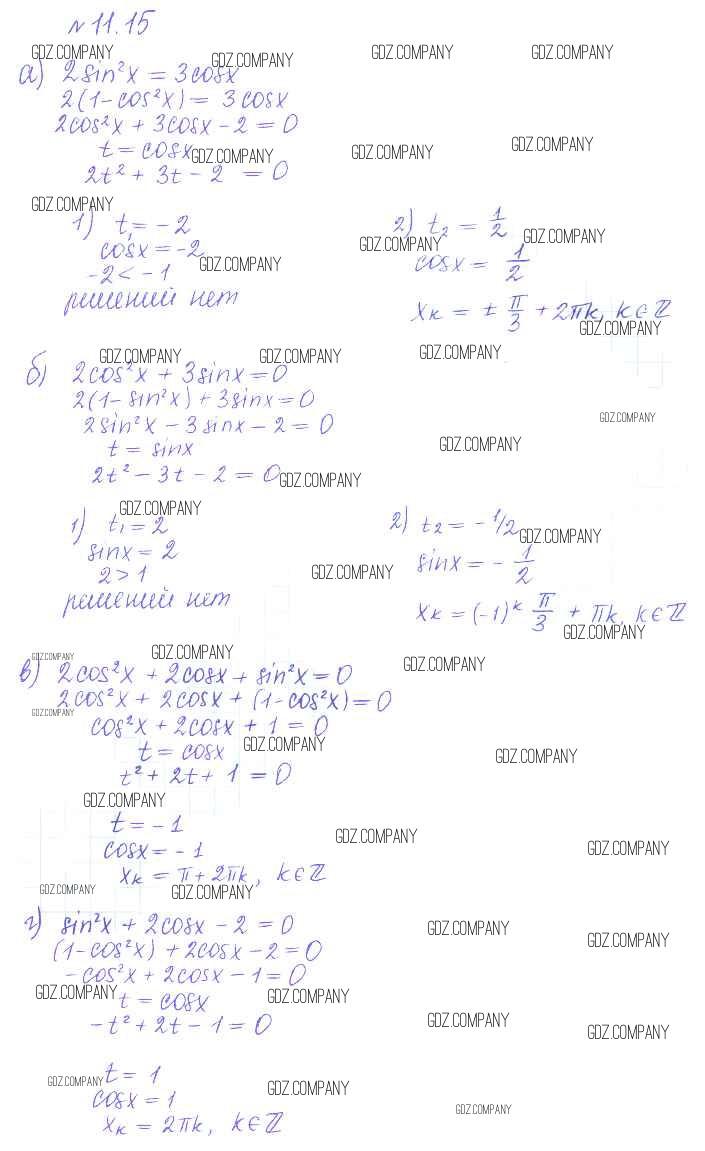 № 11.15
GDZ.COMPANY GDZ.COMPANY GDZ.COMPANY GDZ.COMPANY
а) 2sin²x = 3cosx
2(1-cos²x) = 3cosx
2cos²x + 3cosx - 2 = 0
t = cosx GDZ.COMPANY GDZ.COMPANY GDZ.COMPANY
2t² + 3t - 2 = 0
GDZ.COMPANY
1) t₁ = -2
cosx = -2
-2 < -1
решений нет
GDZ.COMPANY
2) t₂ = 1/2
GDZ.COMPANY GDZ.COMPANY
cosx = 1/2
xₖ = ± π/3 + 2πk, k∈ℤ
GDZ.COMPANY
GDZ.COMPANY GDZ.COMPANY GDZ.COMPANY
б) 2cos²x + 3sinx = 0
2(1-sin²x) + 3sinx = 0
GDZ.COMPANY
2sin²x - 3sinx - 2 = 0
t = sinx GDZ.COMPANY
2t² - 3t - 2 = 0 GDZ.COMPANY
GDZ.COMPANY
1) t₁ = 2
sinx = 2
2 > 1
решений нет
2) t₂ = -1/2
GDZ.COMPANY
sinx = - 1/2
GDZ.COMPANY
xₖ = (-1)ᵏ π/3 + πk, k∈ℤ
GDZ.COMPANY
GDZ.COMPANY GDZ.COMPANY GDZ.COMPANY
в) 2cos²x + 2cosx + sin²x = 0
2cos²x + 2cosx + (1-cos²x) = 0
GDZ.COMPANY
cos²x + 2cosx + 1 = 0
t = cosx GDZ.COMPANY GDZ.COMPANY
t² + 2t + 1 = 0
GDZ.COMPANY
t = -1
GDZ.COMPANY GDZ.COMPANY
cosx = -1
xₖ = π + 2πk, k∈ℤ
GDZ.COMPANY GDZ.COMPANY
г) sin²x + 2cosx - 2 = 0
GDZ.COMPANY GDZ.COMPANY
(1-cos²x) + 2cosx - 2 = 0
-cos²x + 2cosx - 1 = 0
GDZ.COMPANY t = cosx GDZ.COMPANY
-t² + 2t - 1 = 0
GDZ.COMPANY GDZ.COMPANY
t = 1
GDZ.COMPANY GDZ.COMPANY
cosx = 1
GDZ.COMPANY
xₖ = 2πk, k∈ℤ